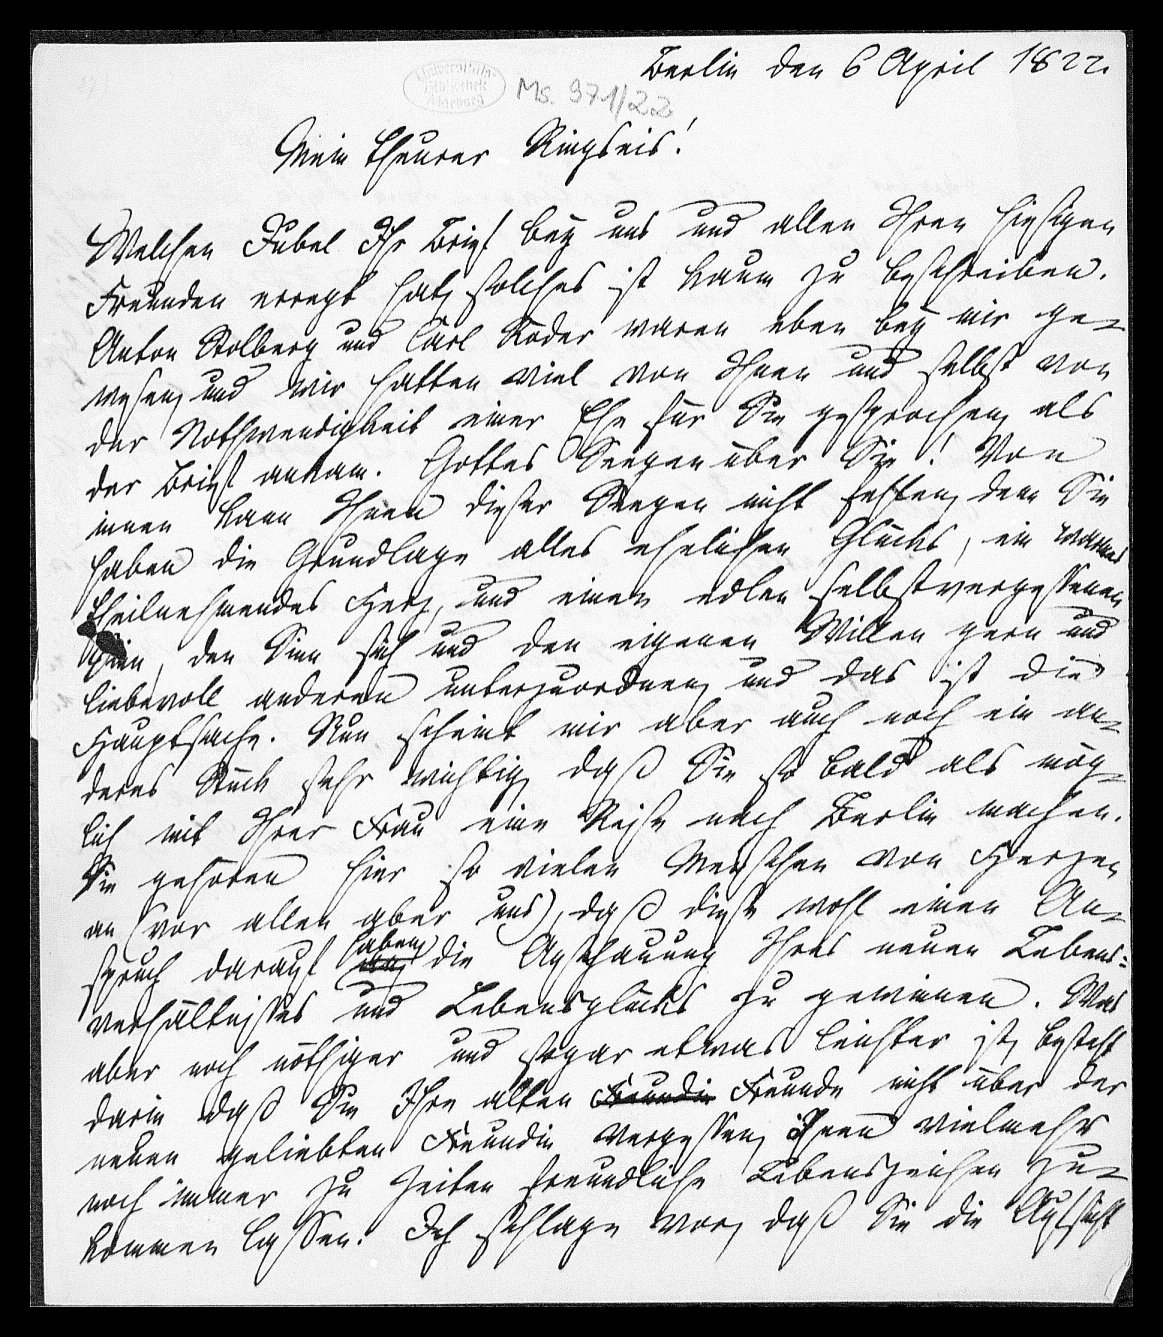 Berlin den 6 April 1822.
Universitäts-
Bibliothek
Marburg
Ms. 971/22
Mein theurer Ringseis!
Welchen Jubel Ihr Brief bey uns und allen Ihren hiesigen
Freunden erregt hat, solches ist kaum zu beschreiben.
Anton Stolberg und Carl Roder waren eben bey mir ge-
wesen, und wir hatten viel von Ihnen und selbst von
der Nothwendigkeit einer Ehe für Sie gesprochen, als
der Brief ankam. Gottes Seegen über Sie! Von
innen kann Ihnen dieser Seegen nicht fehlen, denn Sie
haben die Grundlage alles ehelichen Glücks, ein warmes
theilnehmendes Herz, und einen edlen selbstvergessenen
Sinn, den Sinn sich und den eigenen Willen gern und
liebevoll anderen unterzuordnen, und das ist die
Hauptsache. Nun scheint mir aber auch noch ein an-
deres Stück sehr wichtig, daß Sie so bald als mög-
lich mit Ihrer Frau eine Reise nach Berlin machen.
Sie gehören hier so vielen Menschen von Herzen
an (vor allen aber uns), daß diese wohl einen An-
spruch darauf haben, die Anschauung Ihres neuen Lebens-
verhältnisses und Lebensglücks zu gewinnen. Was
aber noch nöthiger und sogar etwas leichter ist, besteht
darin daß Sie Ihre alten Freundin Freunde nicht über der
neuen geliebten Freundin vergessen, Ihnen vielmehr
noch immer zu Zeiten freundliche Lebenszeichen zu-
kommen lassen. Ich schlage vor, daß Sie die Aufsicht